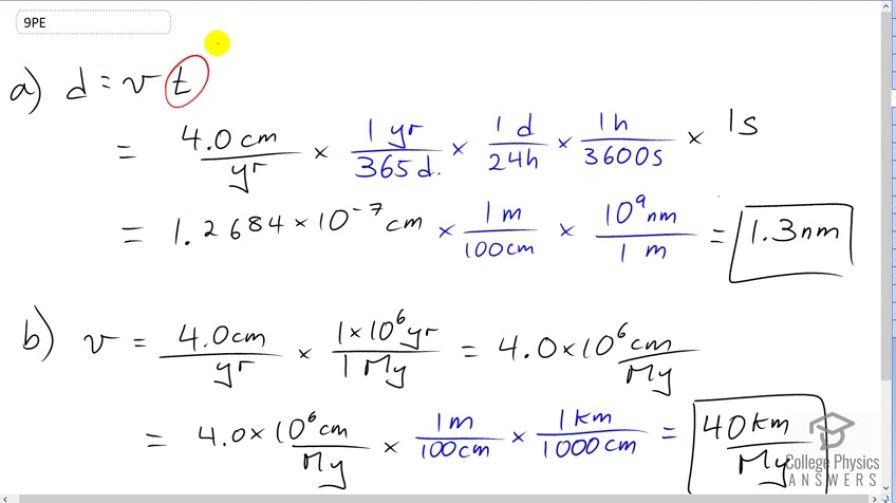 9PE
a) d = v t
= 4.0 cm/yr × 1 yr/365 d. × 1 d/24h × 1h/3600s × 1s
= 1.2684 × 10⁻⁷ cm × 1m/100cm × 10⁹nm/1 m = 1.3nm
b) v = 4.0cm/yr × 1×10⁶yr/1 My = 4.0×10⁶ cm/My
= 4.0×10⁶ cm/My × 1m/100cm × 1km/1000cm = 40km/My
College Physics
ANSWERS